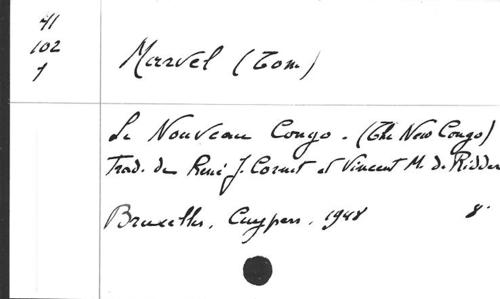 41
102
1
Marvel (Tom)
Le Nouveau Congo. (The New Congo)
Trad. de René J. Cornet et Vincent M. de Ridder
Bruxelles, Cuypers, 1948 8°